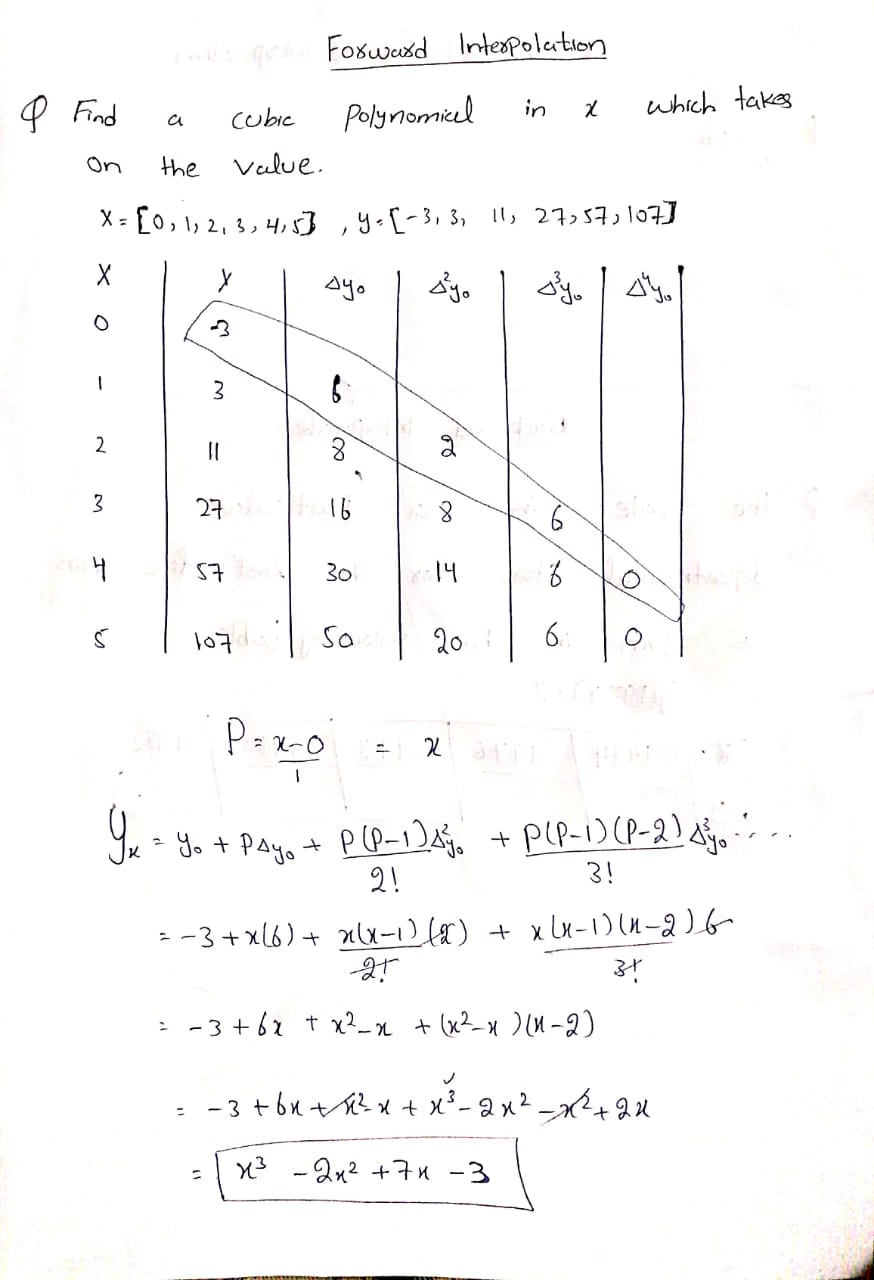 Forward Interpolation
Q Find a cubic Polynomial in x which takes
on the value.
X = [0, 1, 2, 3, 4, 5] , y = [-3, 3, 11, 27, 57, 107]
X | Y | Δy₀ | Δ²y₀ | Δ³y₀ | Δ⁴y₀
0 | -3
1 | 3 | 6
2 | 11 | 8 | 2
3 | 27 | 16 | 8 | 6
4 | 57 | 30 | 14 | 6 | 0
5 | 107 | 50 | 20 | 6 | 0
P = x-0/1 = x
Yx = y₀ + PΔy₀ + P(P-1)Δ²y₀/2! + P(P-1)(P-2)Δ³y₀/3! ....
= -3 + x(6) + x(x-1)(2)/2! + x(x-1)(x-2)6/3!
= -3 + 6x + x²-x + (x²-x)(x-2)
= -3 + 6x + x²-x + x³-2x²-x²+2x
= x³ - 2x² + 7x - 3